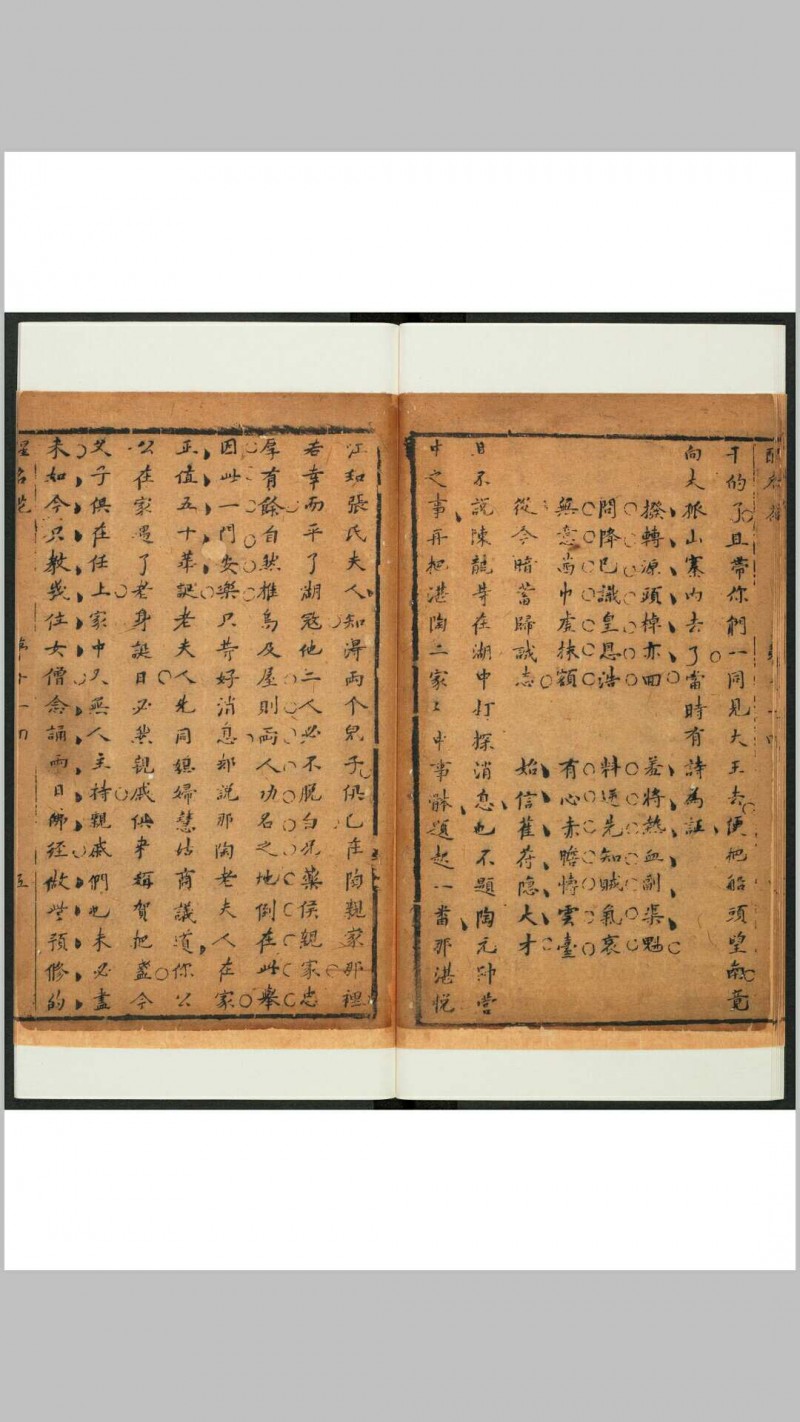 干的了且帶你們一同見大王去便把船頭望
向夫椒山寨內去了當時有詩為証
撥轉源頭棹亦回 羞將熱血副渠魁
問降已識皇恩浩 料遁先知賊氣衰
無意尚巾虛抹額 有心赤膽情雲臺
從今暗當歸誠志 始信萑苻隐大才
且不說陳龍等在湖中打探消息也不題陶元帥營
中之事再把湛陶二家之中事體題起一番那湛悅
江和張氏夫人知得兩个兒子俱已在陶親家那裡
若幸而平了湖冦他二人必不脫白况藥侯親家忠
厚有餘自然推烏及屋則兩人功名之地倒在此舉
因此一門安樂只等好消息却說那陶老夫人在家
正值五十華誕老夫人先同媳婦慧姑商議道你公
公在家遇了老身誕日必然親戚俱来稱賀把盞今
父子俱在任上家中又無人主持親戚們也未必盡
来如今只教幾位女僧念誦兩日佛經做些預修的
第十一回 五